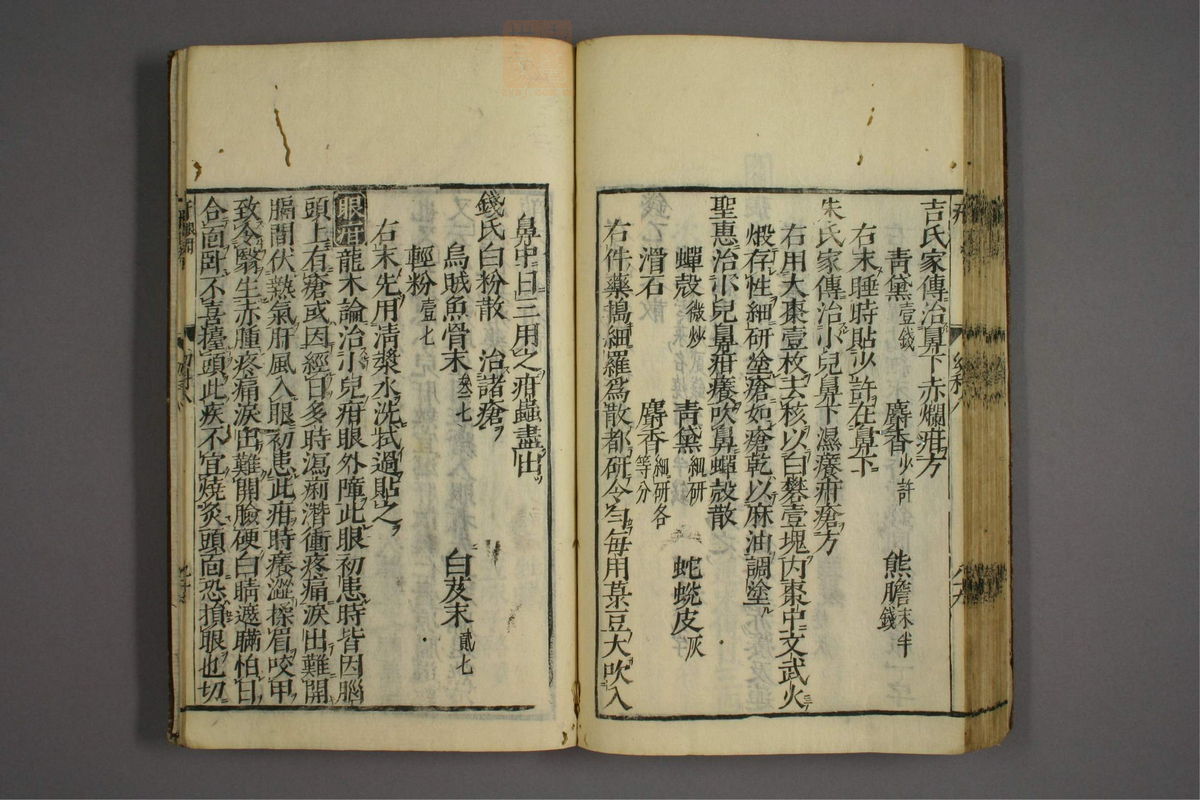 吉氏家傳治鼻下赤爛疳方
青黛壹錢 麝香少許 熊膽末半錢
右末睡時貼少許在鼻下
朱氏家傳治小兒鼻下濕癢疳瘡方
右用大棗壹枚去核以白礬壹塊内棗中文武火
煅存性細研塗瘡如瘡乾以麻油調塗
聖惠治小兒鼻疳癢吹鼻蟬殼散
蟬殼微炒 青黛細研 蛇蛻皮灰
滑石 麝香細研各等分
右件藥擣細羅爲散都研令勻每用菉豆大吹入
鼻中日三用之疳蟲盡出
錢氏白粉散 治諸瘡
烏賊魚骨末叄七 白芨末貳七
輕粉壹七
右末先用淸漿水洗拭過貼之
眼疳龍木論治小兒疳眼外障此眼初患時皆因腦
頭上有瘡或因經日多時瀉痢潛衝疼痛淚出難開
膈間伏熱氣肝風入眼初患此疳時癢澁揉眉咬甲
致令翳生赤腫疼痛淚出難開臉硬白睛遮瞞怕日
合面卧不喜擡頭此疾不宜燒灸頭面恐損眼也切